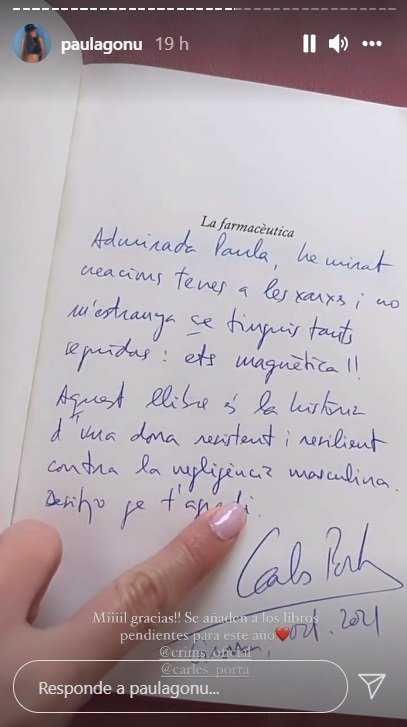 paulagonu 19 h
La farmacèutica
Admirada Paula, he mirat
creacions teves a les xarxes i no
m'estranya qe tinguis tants
seguidors: ets magnètica!!
Aquest llibre és la història
d'una dona resistent i resilient
contra la negligència masculina.
Desitjo qe t'agradi.
Carles Porta
oct. 2021
Miiiil gracias!! Se añaden a los libros
pendientes para este año❤️
@crims_oficial
@carles_porta
Responde a paulagonu...